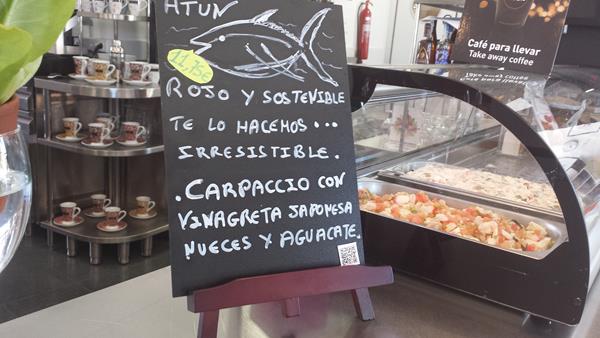 ATUN
11,75€
ROJO Y SOSTENIBLE
TE LO HACEMOS...
IRRESISTIBLE.
.CARPACCIO CON
VINAGRETA JAPONESA
NUECES Y AGUACATE.
Café para llevar
Take away coffee